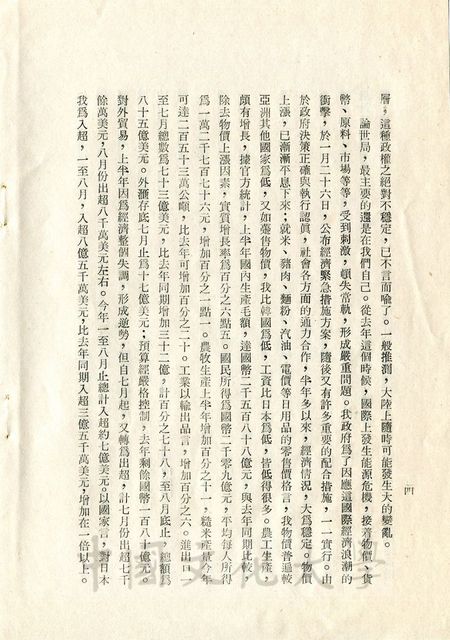 層，這種政權之絕對不穩定，已不言而喻了。一般推測，大陸上隨時可能發生大的變亂。
論世局，最主要的還是在我們自己。從去年這個時候，國際上發生能源危機，接着物價、貨
幣、原料、市場等等，受到刺激，頓失常軌，形成嚴重問題。我政府為了因應這國際經濟浪潮的
衝擊，於一月二十六日，公布經濟緊急措施方案，隨後又有許多重要的配合措施，一一實行。由
於政府決策正確與執行認真，社會各方面的通力合作，半年多以來，經濟情況，大為穩定。物價
上漲，已漸漸平息下來；就米、豬肉、麵粉、汽油、電價等日用品的零售價格言，我物價普遍較
亞洲其他國家為低，又如躉售物價，我比韓國為低，工資比日本為低，皆低得很多。農工生產
頗有增長，據官方統計，上半年國內生產毛額，達國幣二千五百八十八億元，與去年同期比較，
除去物價上漲因素，實質增長率為百分之六點五。國民所得為國幣二千零九億元，平均每人所得
為一萬二千七百七十六元，增加百分之一點一。農牧生產上半年增加百分之十一，糙米產量今年
可達二百五十三萬公噸，比去年可增加百分之二十。工業以輸出品言，增加百分之六。進出口一
至七月總數為七十三億美元，比去年同期增加三十二億，計百分之七十八，至八月底止，總額為
八十五億美元。外滙存底七月止為十七億美元；預算經嚴格控制，去年剩餘國幣一百八十億元。
對外貿易，上半年因為經濟整個失調，形成逆勢，但自七月起，又轉為出超，計七月份出超七千
餘萬美元，八月份出超八千萬美元左右。今年一至八月止總計入超約七億美元。以國家言，對日本
我為入超，一至八月，入超八億五千萬美元，比去年同期入超三億五千萬美元，增加在一倍以上。
四
中國文化大學